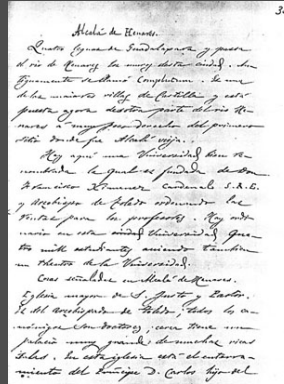 3
Alcalá de Henares.
Quatro leguas de Guadalajara y passa
el rio de Henares los muros desta ciudad. An
tiguamente se llamó Complutum. Es una
de las mejores villas de Castilla y está
puesta agora desotra parte del rio He
nares a muy poco donde los del primero
sitio donde fue Alcalá vieja.
Hay aquí una Universidad bien re
nombrada la qual es fundada de Don
Francisco Ximenez Cardenal S.R.E.
y Arzobispo de Toledo ordenando las
rentas para los profesores. Hay ordi
nario en esta ciudad Universidad qua
tro mill estudiantes aviendo tambien
un Rector de la Universidad.
Cosas señaladas en Alcalá de Henares.
Iglesia mayor de S. Justo y Pastor.
Es del Arzobispado de Toledo; todos los ca
nónigos son doctores; tiene un
palacio muy grande de muchas ricas
salas. En esta iglesia está el enterra
miento del Príncipe D. Carlos hijo del